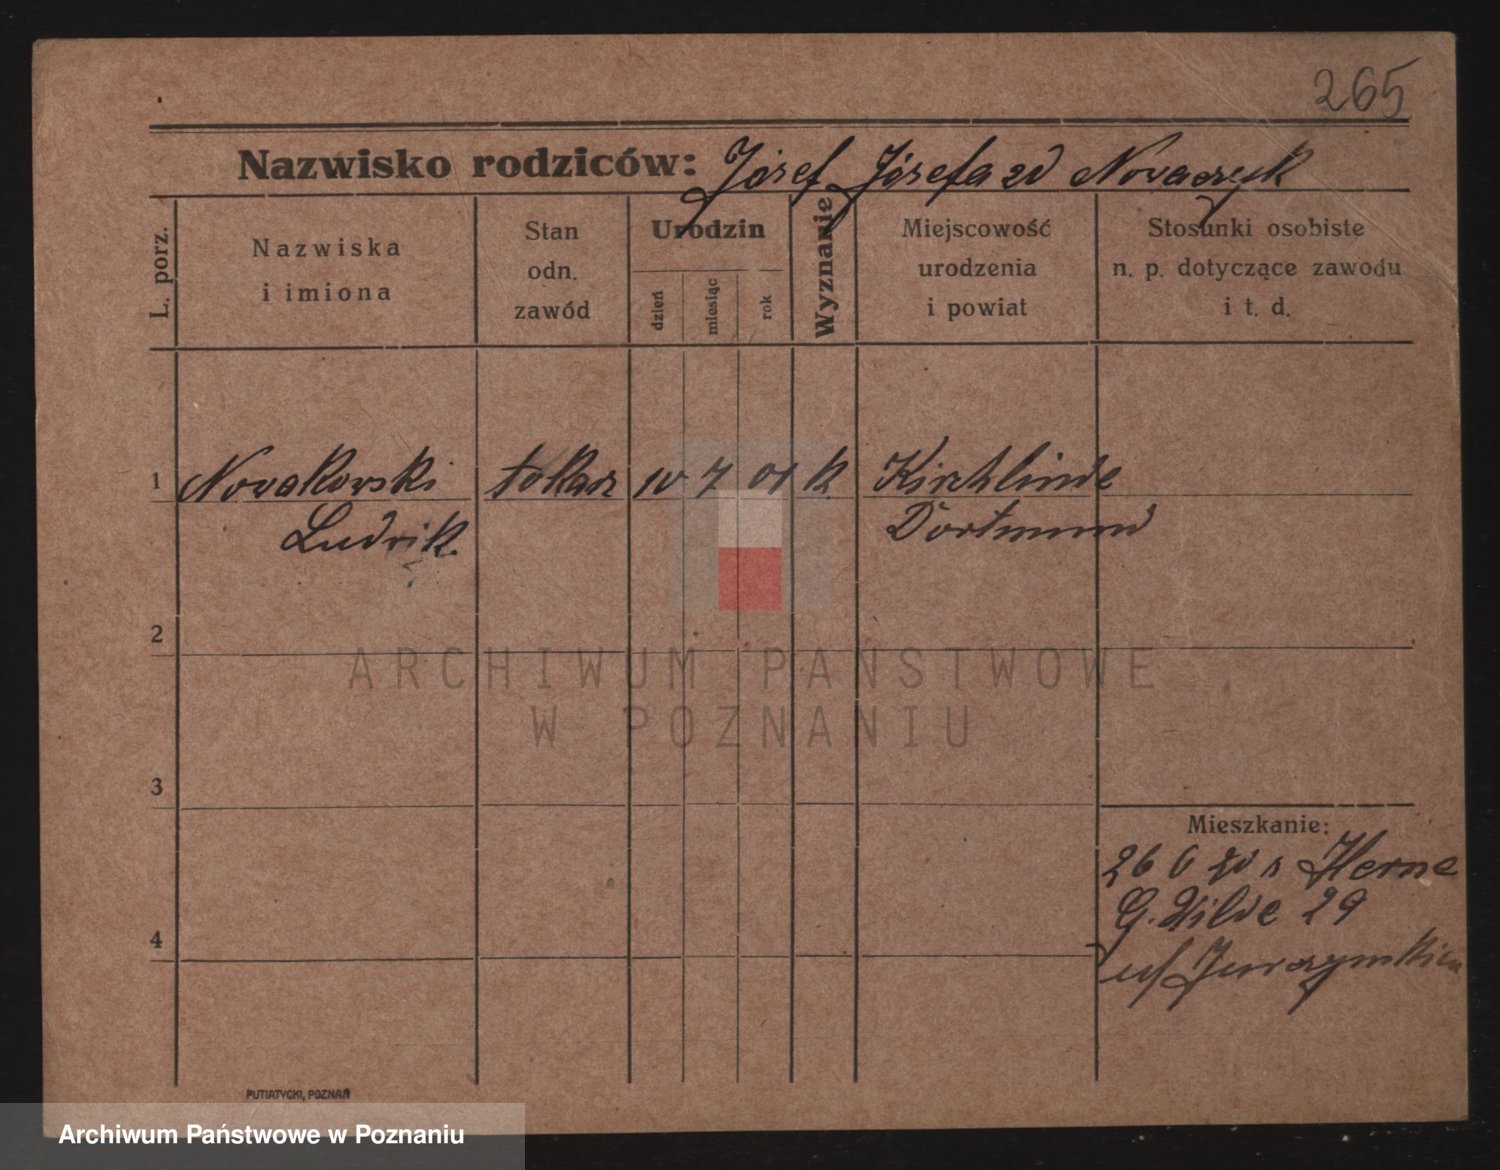 265
Nazwisko rodziców: Józef Józefa zd Nowaczyk
L. porz.
Nazwiska
i imiona
Stan
odn.
zawód
Urodzin
dzień
miesiąc
rok
Wyznanie
Miejscowość
urodzenia
i powiat
Stosunki osobiste
n. p. dotyczące zawodu
i t. d.
1 Nowakowski tokarz 10 7 01 k. Kirchlinde
Ludwik. Dortmund
2
ARCHIWUM PAŃSTWOWE
W POZNANIU
3
Mieszkanie:
26 6 20 s Herne
G. Wilde 29
4
PUTIATYCKI, POZNAŃ
Archiwum Państwowe w Poznaniu